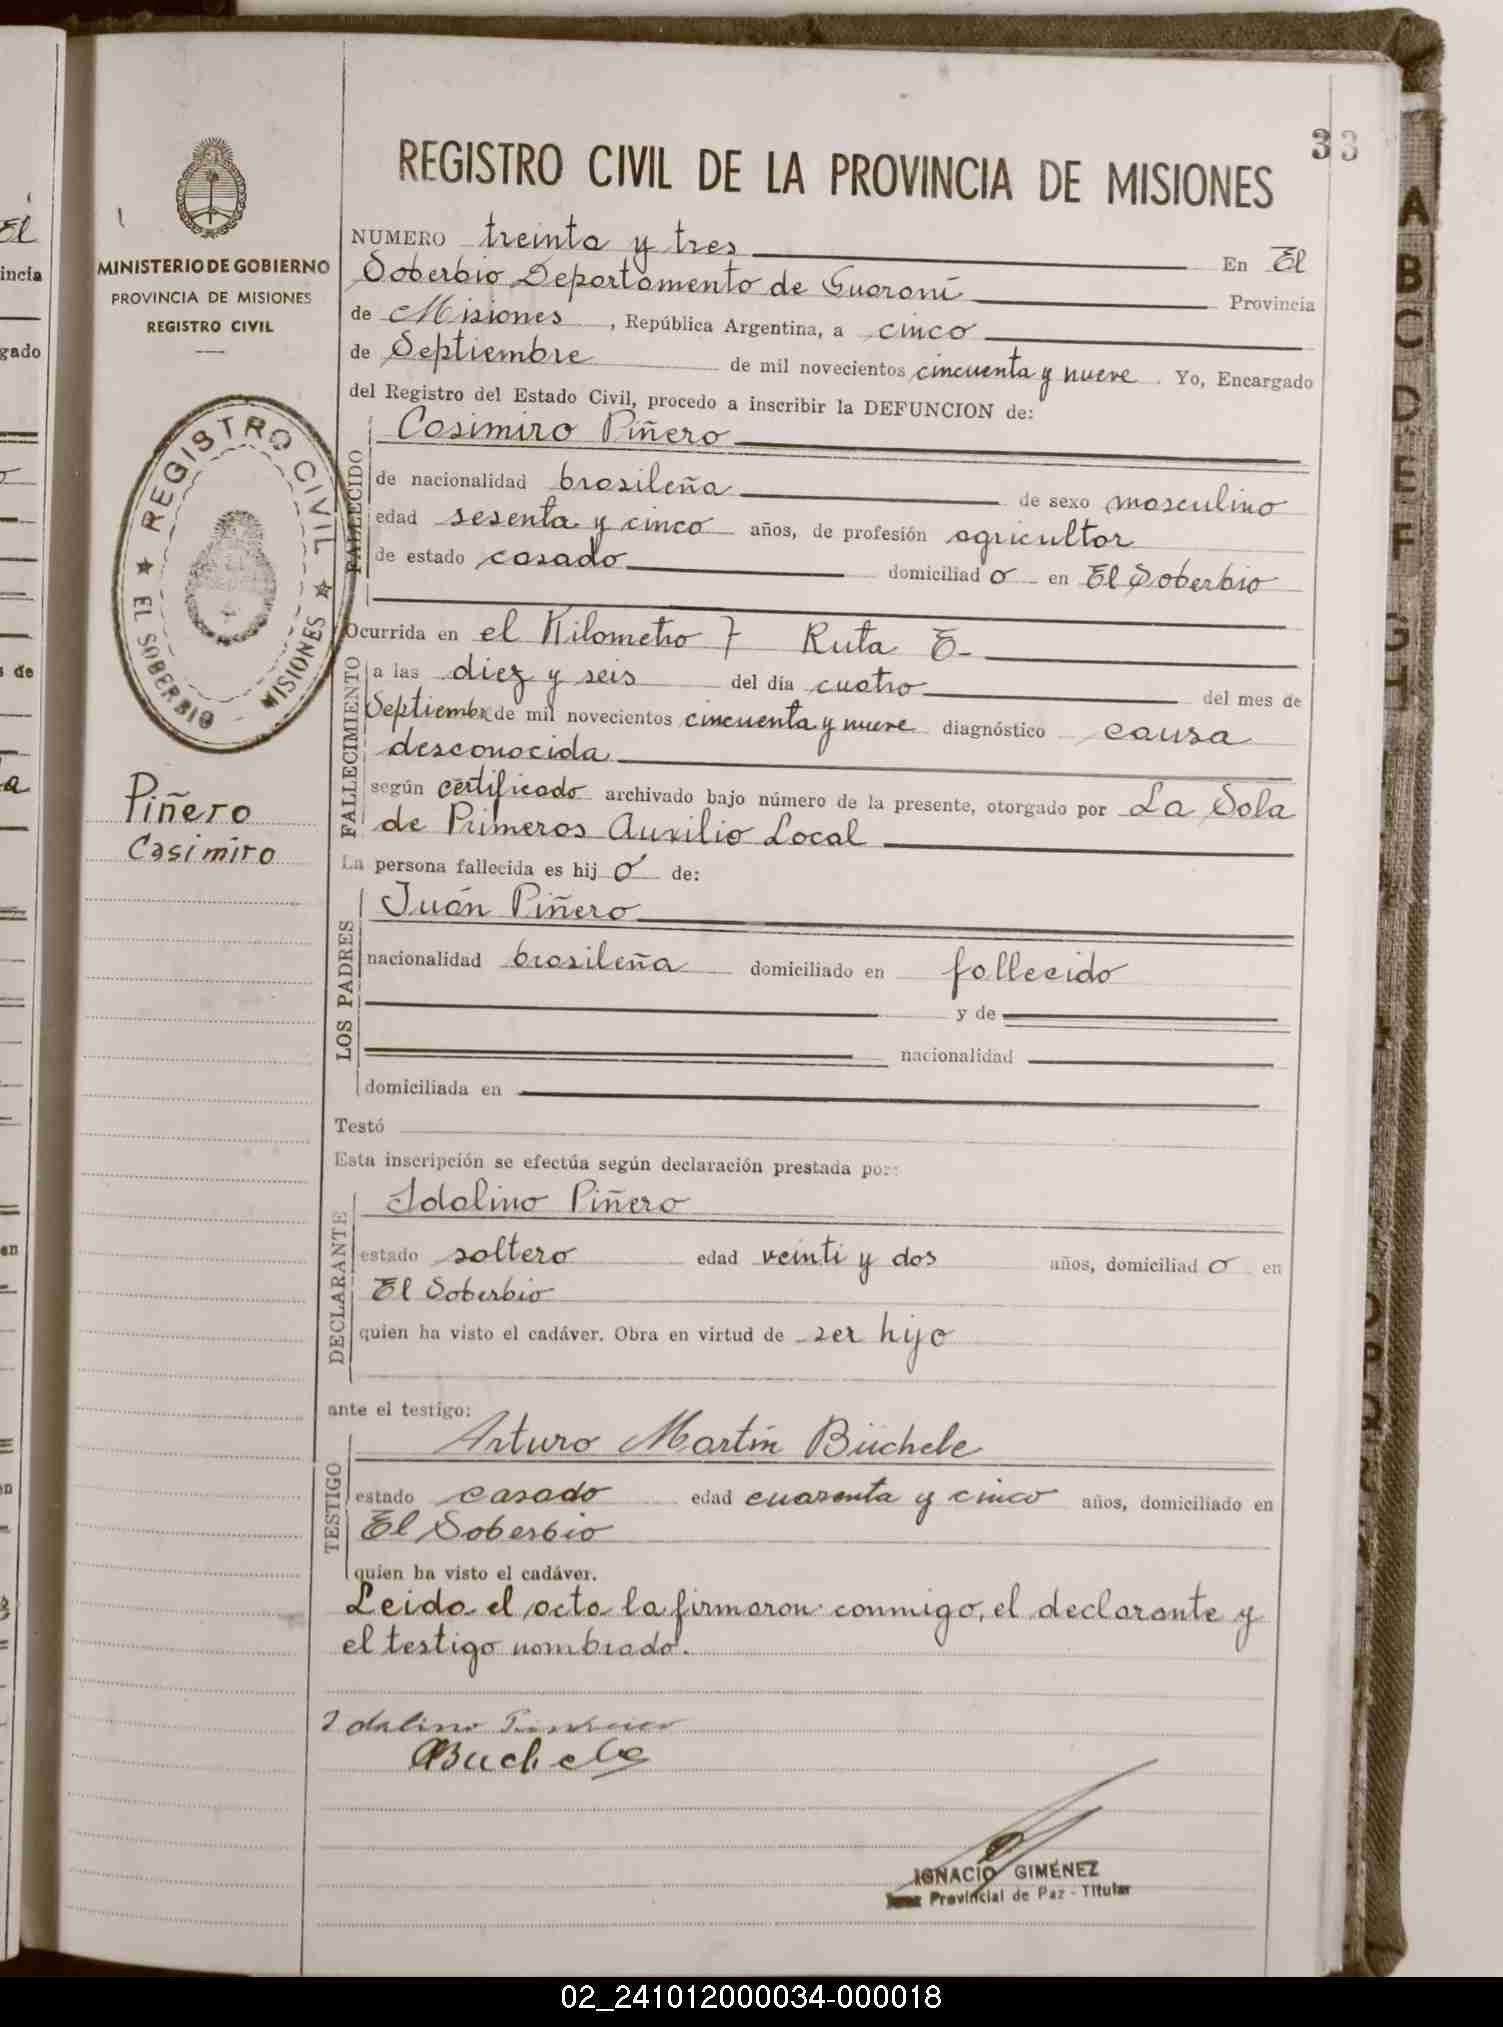 33
REGISTRO CIVIL DE LA PROVINCIA DE MISIONES
MINISTERIO DE GOBIERNO
PROVINCIA DE MISIONES
REGISTRO CIVIL
REGISTRO CIVIL
★ EL SOBERBIO - MISIONES ★
Piñero
Casimiro
NUMERO treinta y tres En El
Soberbio Departamento de Guaraní Provincia
de Misiones, República Argentina, a cinco
de Septiembre de mil novecientos cincuenta y nueve. Yo, Encargado
del Registro del Estado Civil, procedo a inscribir la DEFUNCION de:
FALLECIDO
Casimiro Piñero
de nacionalidad brasileña de sexo masculino
edad sesenta y cinco años, de profesión agricultor
de estado casado domiciliado en El Soberbio
FALLECIMIENTO
Ocurrida en el Kilometro 7 Ruta
a las diez y seis del día cuatro del mes de
Septiembre de mil novecientos cincuenta y nueve diagnóstico causa
desconocida
según certificado archivado bajo número de la presente, otorgado por La Sala
de Primeros Auxilio Local
La persona fallecida es hijo de:
LOS PADRES
Juán Piñero
nacionalidad brasileña domiciliado en fallecido
y de
nacionalidad
domiciliada en
Testó
Esta inscripción se efectúa según declaración prestada por:
DECLARANTE
Idalino Piñero
estado soltero edad veinti y dos años, domiciliado en
El Soberbio
quien ha visto el cadáver. Obra en virtud de ser hijo
ante el testigo:
TESTIGO
Arturo Martín Büchele
estado casado edad cuarenta y cinco años, domiciliado en
El Soberbio
quien ha visto el cadáver.
Leida el acta la firmaron conmigo, el declarante y
el testigo nombrado.
Idalino
Buchele
IGNACIO GIMÉNEZ
Juez Provincial de Paz - Titular
A
B
C
D
E
F
G
H
O
P
Q
El
incia
gado
s de
a
en
02_241012000034-000018